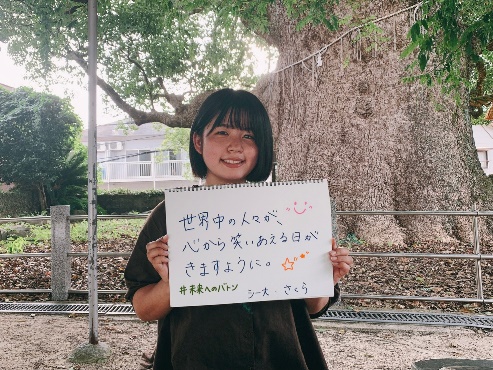 世界中の人々が、
心から笑いあえる日が
きますように。
#未来へのバトン
シー大・さくら